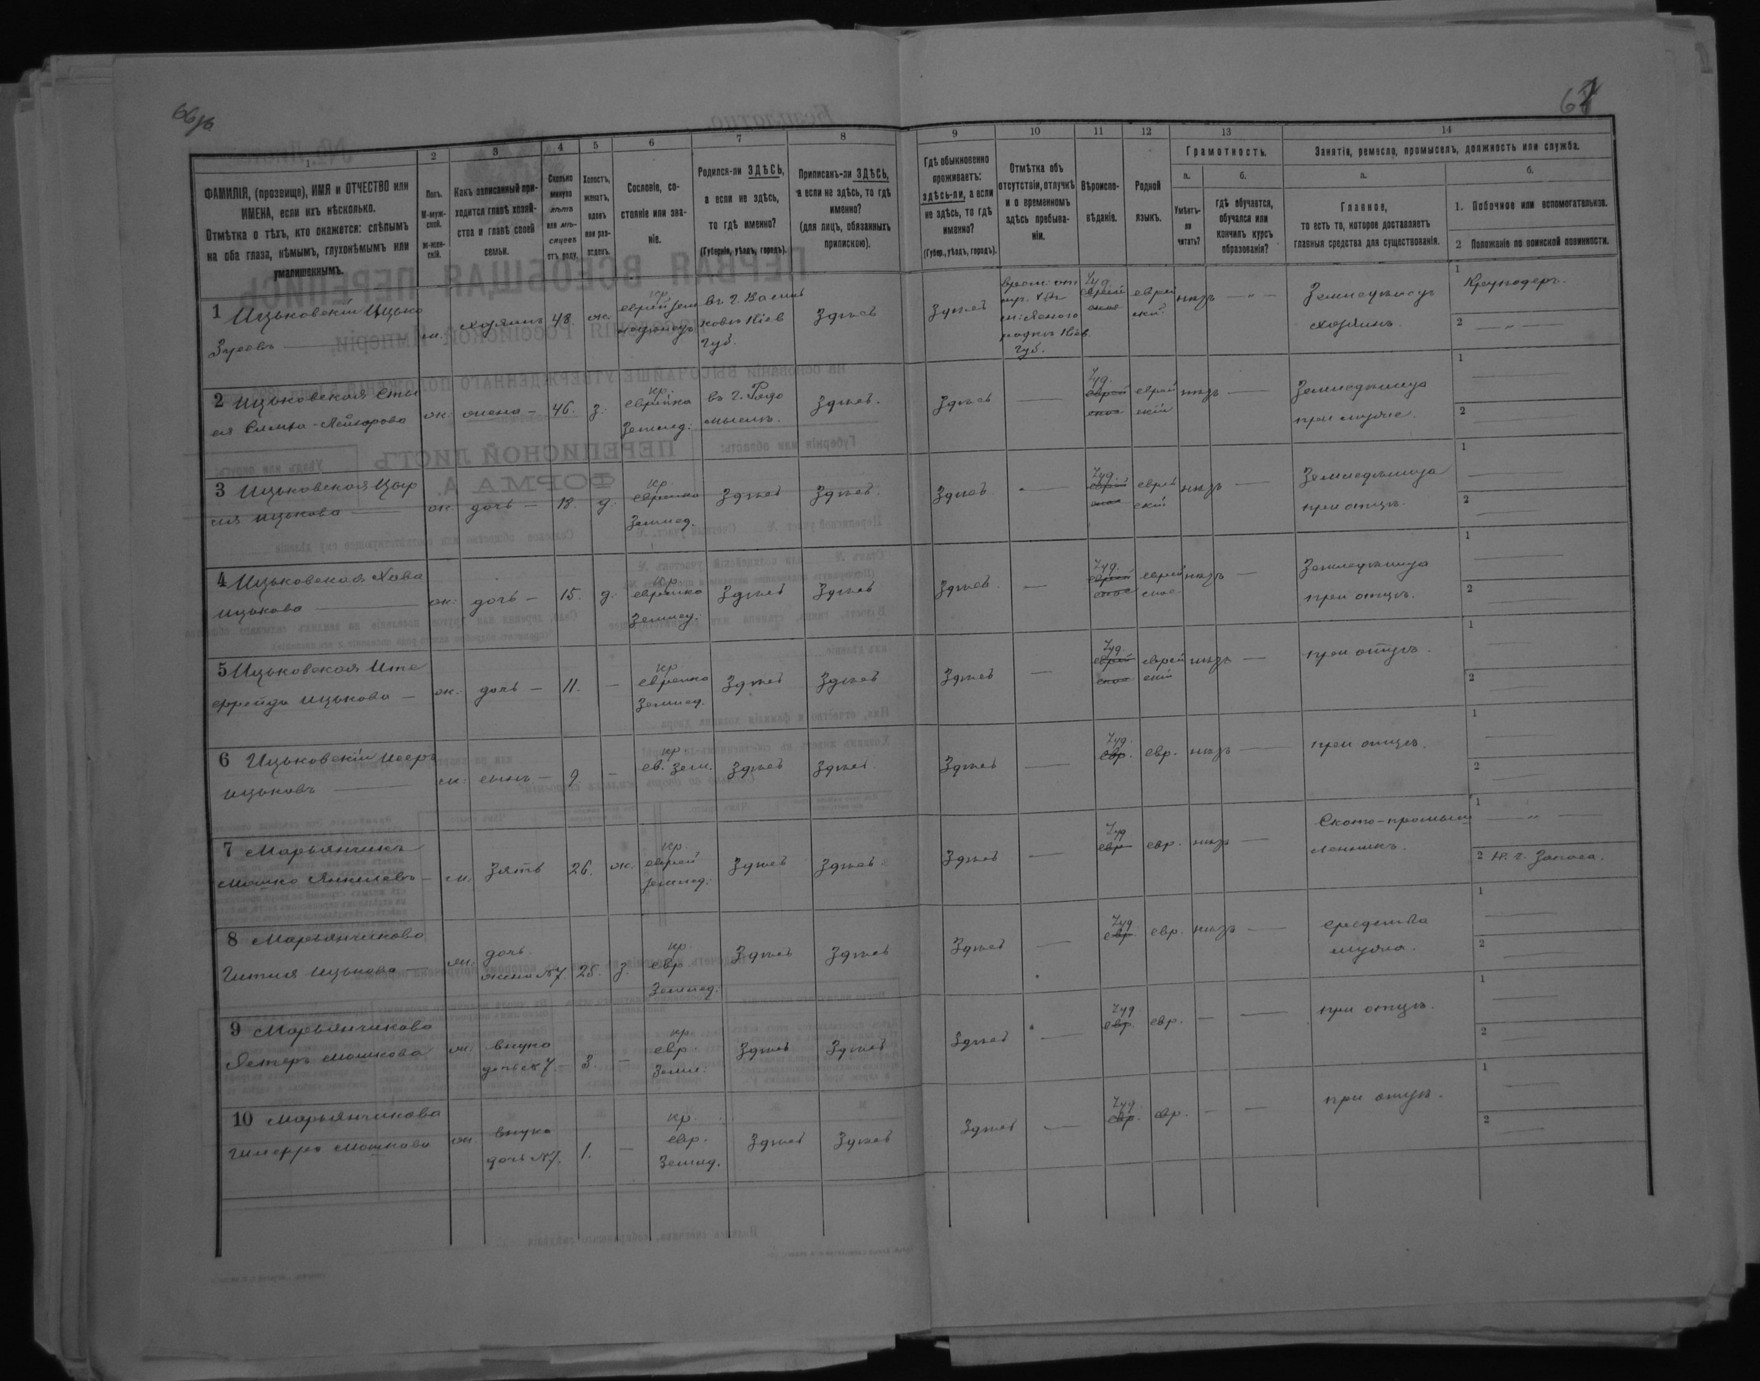 66об
67
1
ФАМИЛІЯ, (прозвище), ИМЯ и ОТЧЕСТВО или
ИМЕНА, если ихъ нѣсколько.
Отмѣтка о тѣхъ, кто окажется: слѣпымъ
на оба глаза, нѣмымъ, глухонѣмымъ или
умалишеннымъ.
2
Полъ.
М-муж-
ской.
ж-жен-
скій.
3
Какъ записанный при-
ходится главѣ хозяй-
ства и главѣ своей
семьи.
4
Сколько
минуло
лѣтъ
или мѣ-
сяцевъ
отъ роду.
5
Холостъ,
женатъ,
вдовъ
или раз-
веденъ.
6
Сословіе, со-
стояніе или зва-
ніе.
7
Родился-ли ЗДѢСЬ,
а если не здѣсь,
то гдѣ именно?
(Губернія, уѣздъ, городъ).
8
Приписанъ-ли ЗДѢСЬ,
а если не здѣсь, то гдѣ
именно?
(для лицъ, обязанныхъ
припискою).
9
Гдѣ обыкновенно
проживаетъ:
здѣсь-ли, а если
не здѣсь, то гдѣ
именно?
(Губер., уѣздъ, городъ).
10
Отмѣтка объ
отсутствіи, отлучкѣ
и о временномъ
здѣсь пребыва-
ніи.
11
Вѣроиспо-
вѣданіе.
12
Родной
языкъ.
13
Грамотность.
а.
Умѣетъ-
ли
читать?
б.
гдѣ обучается,
обучался или
кончилъ курсъ
образованія?
14
Занятіе, ремесло, промыселъ, должность или служба.
а.
Главное,
то есть то, которое доставляетъ
главныя средства для существованія.
б.
1. Побочное или вспомогательное.
2 Положеніе по воинской повинности.
1 Ицьковскій Ицько
м. хозяинъ 48 ж.
кр.
еврей зем
въ г. Василь
ковѣ Кіев
Губ.
Здѣсь
Здѣсь
Губ.
Іуд.
еврей
скій
нѣтъ
Земледѣлецъ
хозяинъ
1
2
2 Ицьковская
ж. жена 46. з.
кр.
еврейка
Землед.
въ г. Радо
мыслѣ.
Здѣсь
Здѣсь
Іуд.
еврей
скій
нѣтъ
Земледѣлица
при мужѣ.
1
2
3 Ицьковская
Ицькова ж. дочь 18. д.
кр.
еврейка
Землед.
Здѣсь
Здѣсь
Здѣсь
Іуд.
еврей
скій
нѣтъ
Земледѣлица
при отцѣ.
1
2
4 Ицьковская Хава
Ицькова ж. дочь 15. д.
кр.
еврейка
Землед.
Здѣсь
Здѣсь
Здѣсь
Іуд.
еврей
ское
нѣтъ
Земледѣлица
при отцѣ.
1
2
5 Ицьковская
Фрейда Ицькова ж. дочь 11.
кр
еврейка
Землед.
Здѣсь
Здѣсь
Здѣсь
Іуд.
еврей
скій
нѣтъ
при отцѣ.
1
2
6 Ицьковскій
Ицьковъ м. сынъ 9
кр
ев. Зем.
Здѣсь
Здѣсь
Здѣсь
Іуд.
евр.
евр.
нѣтъ
при отцѣ.
1
2
7 Марьянчикъ
Мошко Янкилевъ м. зять 26. ж.
кр
еврей
землед.
Здѣсь
Здѣсь
Здѣсь
Іуд
евр
евр.
нѣтъ
Ското-промыш
ленникъ.
1
2
8 Марьянчикова
Гитля Ицькова
дочь
жена №7 25. з.
кр.
евр
Землед.
Здѣсь
Здѣсь
Здѣсь
Іуд
евр.
евр.
нѣтъ
средства
мужа.
1
2
9 Марьянчикова
Эстеръ Мошкова ж.
внука
дочь №7. 3.
кр.
евр.
Земл.
Здѣсь
Здѣсь
Здѣсь
Іуд
евр.
евр.
при отцѣ.
1
2
10 Марьянчикова
Мошкова ж.
внука
дочь №7. 1.
кр.
евр.
Землед.
Здѣсь
Здѣсь
Здѣсь
Іуд
евр.
евр.
при отцѣ.
1
2